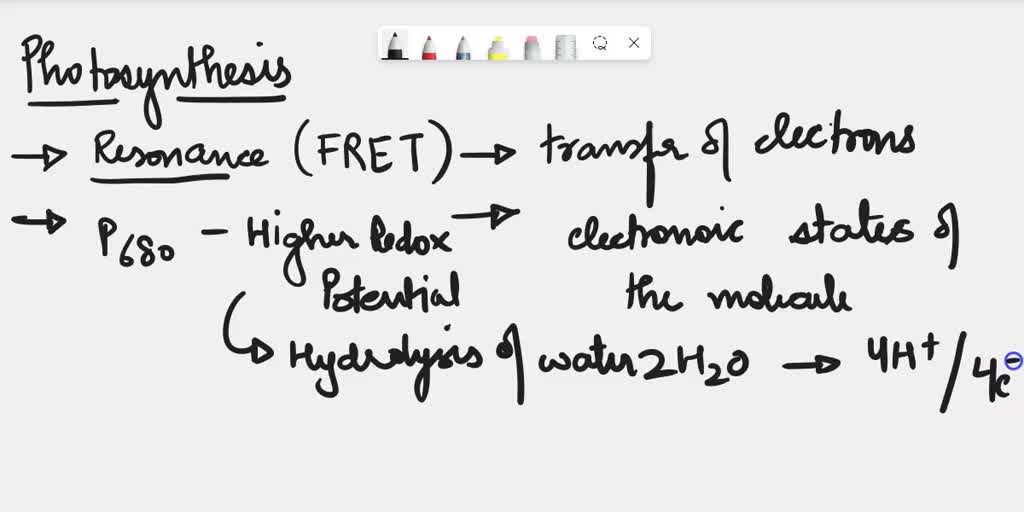 Photosynthesis
→ Resonance (FRET) → transfer of electrons
→ P680 - Higher Redox → electronoic states of
Potential the molecule
↳ Hydrolysis of water 2H2O → 4H+/4e-